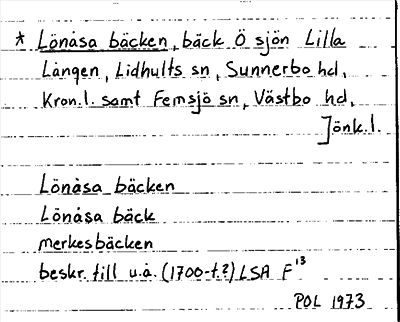 * Lönåsa bäcken, bäck Ö sjön Lilla
Lången, Lidhults sn, Sunnerbo hd,
Kron.l. samt Femsjö sn, Västbo hd,
Jönk.l.
Lönåsa bäcken
Lönåsa bäck
merkesbäcken
beskr. till u.å. (1700-t.?) LSA F¹³
POL 1973